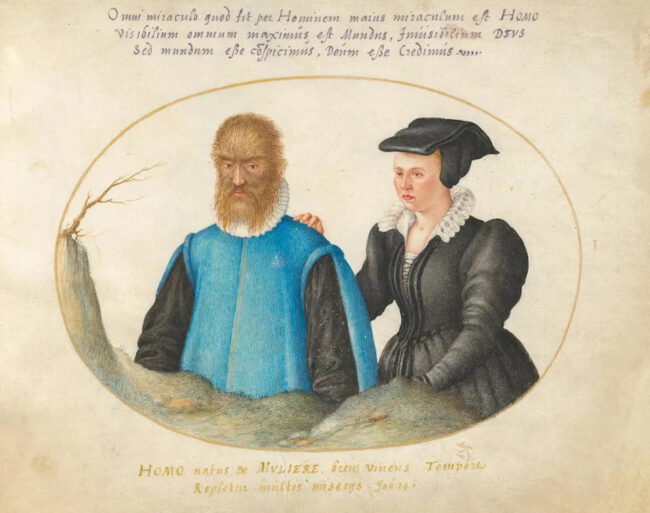 Omni miraculo quod fit per Hominem maius miraculum est HOMO
Visibilium omnium maximus est Mundus, Inuisibilium DEVS
Sed mundum esse cōspicimus, Deum esse Credimus
HOMO natus de MVLIERE, breui viuens Tempore
Repletur multis miserijs. Job 14.